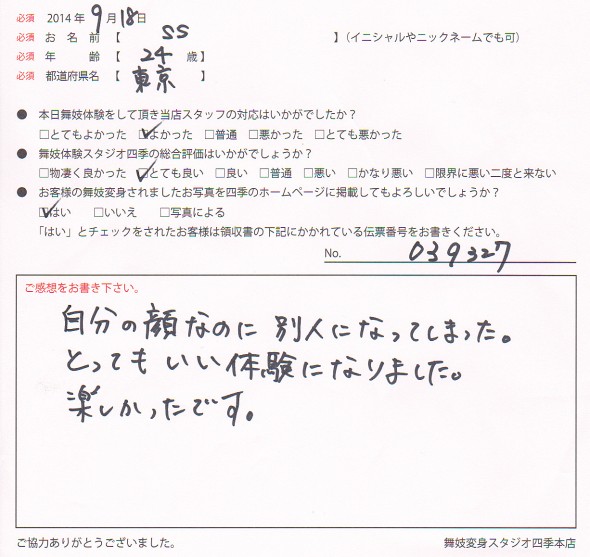 必須 2014年9月18日
必須 お名前【 SS 】(イニシャルやニックネームでも可)
必須 年齢【 24 歳】
必須 都道府県名【 東京 】
● 本日舞妓体験をして頂き当店スタッフの対応はいかがでしたか?
□とてもよかった ☑よかった □普通 □悪かった □とても悪かった
● 舞妓体験スタジオ四季の総合評価はいかがでしょうか?
□物凄く良かった ☑とても良い □良い □普通 □悪い □かなり悪い □限界に悪い二度と来ない
● お客様の舞妓変身されましたお写真を四季のホームページに掲載してもよろしいでしょうか?
☑はい □いいえ □写真による
「はい」とチェックをされたお客様は領収書の下記にかかれている伝票番号をお書きください。
No. 039327
ご感想をお書き下さい。
自分の顔なのに別人になってしまった。
とってもいい体験になりました。
楽しかったです。
ご協力ありがとうございました。 舞妓変身スタジオ四季本店